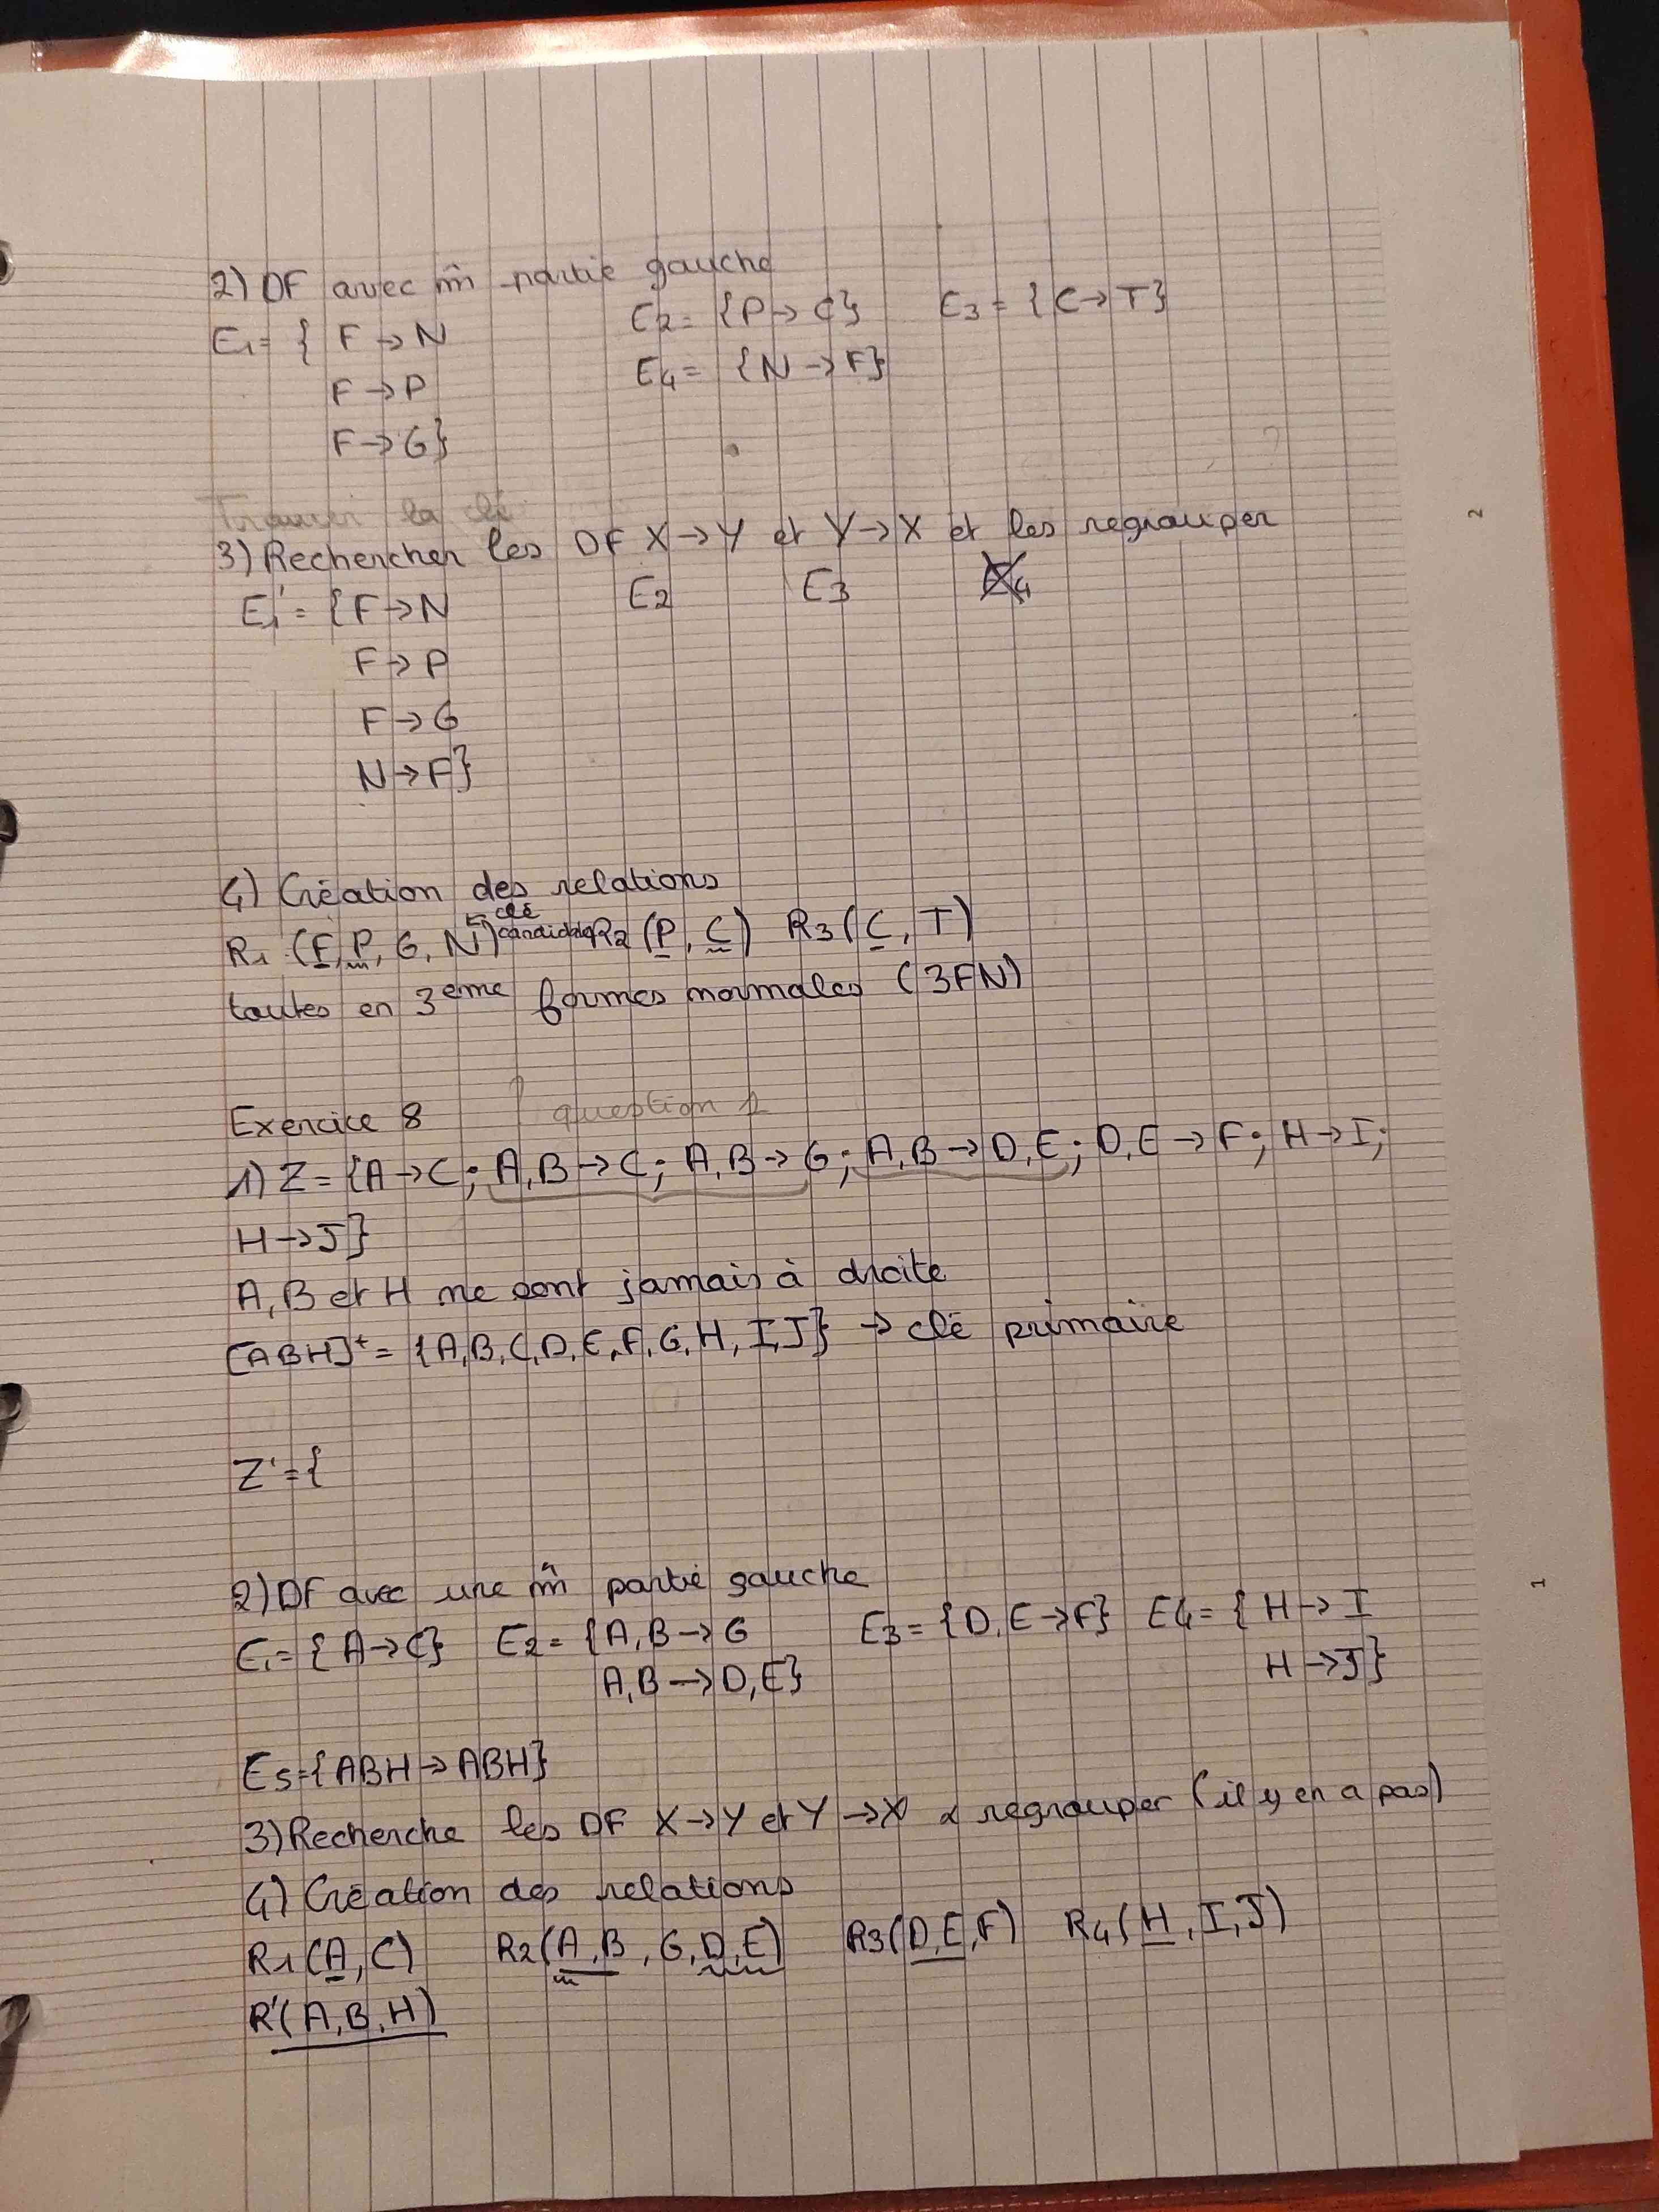 2) DF avec m̂ partie gauche
E1 = { F → N
E2 = {P → C}
E3 = {C → T}
F → P
E4 = {N → F}
F → G}
?
Trouver la clé
3) Rechercher les DF X → Y et Y → X et les regrouper
E1' = {F → N
E2
E3
E4
F → P
F → G
N → F}
4) Création des relations
R1 (F, P, G, N) ← clé candidate R2 (P, C) R3 (C, T)
toutes en 3ème formes normales (3FN)
Exercice 8
? question 1
1) Z = {A → C ; A,B → C ; A,B → G ; A,B → D,E ; D,E → F ; H → I ;
H → J}
A, B et H ne sont jamais à droite
[ABH]⁺ = {A,B,C,D,E,F,G,H,I,J} → clé primaire
Z' = {
2) DF avec une m̂ partie gauche
E1 = {A → C}
E2 = {A,B → G
E3 = {D,E → F}
E4 = { H → I
A,B → D,E}
H → J}
E5 = {ABH → ABH}
3) Recherche les DF X → Y et Y → X & regrouper (il y en a pas)
4) Création des relations
R1 (A, C) R2 (A,B, G, D,E) R3 (D,E,F) R4 (H, I, J)
R' (A, B, H)
2
1